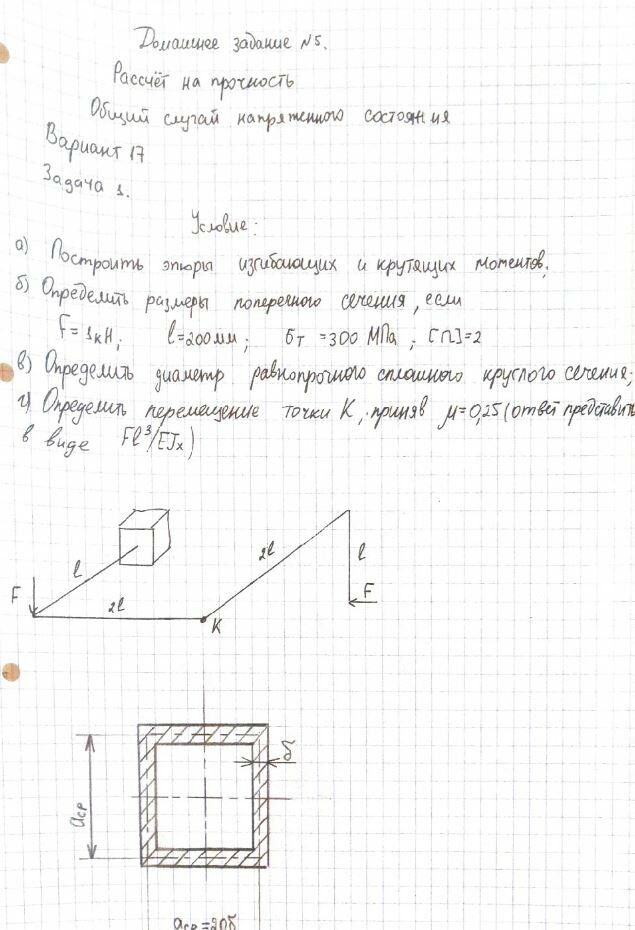 Домашнее задание №5.
Рассчёт на прочность
Общий случай напряженного состояния
Вариант 17
Задача 1.
Условие:
а) Построить эпюры изгибающих и крутящих моментов;
б) Определить размеры поперечного сечения, если
F=1кН; l=200мм; σт =300 МПа; [n]=2
в) Определить диаметр равнопрочного сплошного круглого сечения;
г) Определить перемещение точки К, приняв μ=0,25 (ответ представить
в виде Fl³/EJx)
l
2l
l
F
F
2l
К
δ
aср
aср=20δ